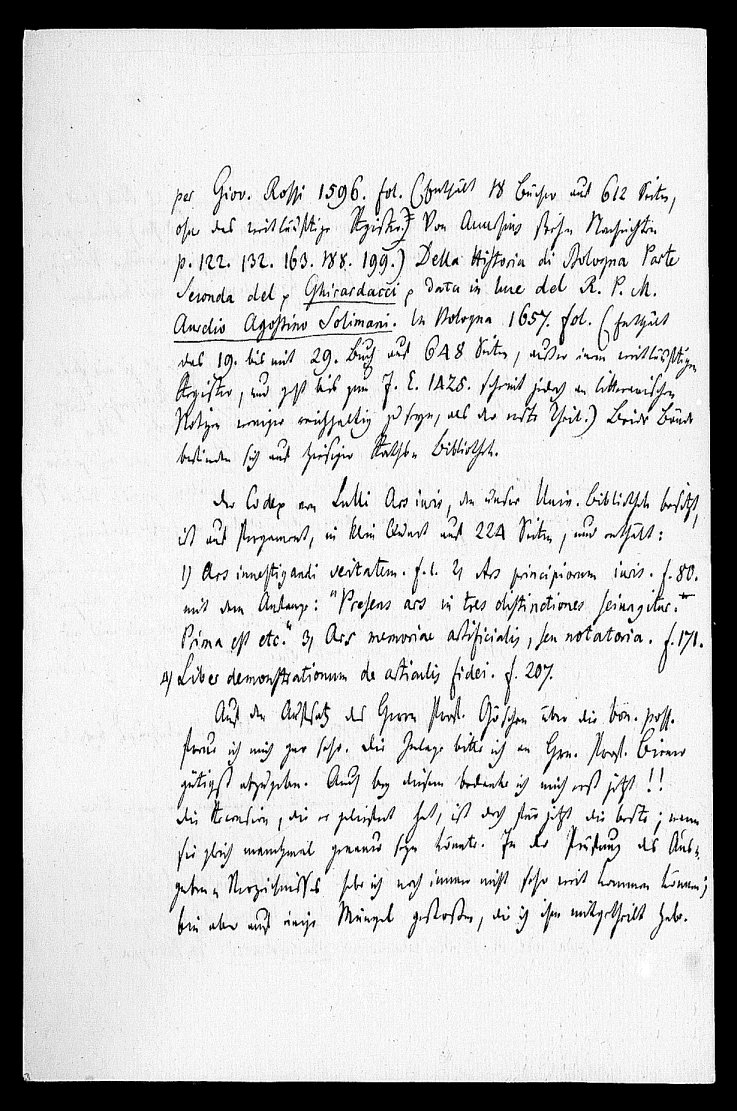 per Giov. Rossi 1596. fol. (Enthält 18 Bücher auf 612 Seiten,
ohne das weitläuftige Register.) Von Accursius stehen Nachrichten
p. 122. 132. 163. 188. 199.) Della Historia di Bologna Parte
Seconda del P Ghirardacci, data in luce del R. P. M.
Aurelio Agostino Solimani. In Bologna 1657. fol. (Enthält
das 19. bis mit 29. Buch auf 648 Seiten, außer einem weitläuftigen
Register, und geht bis zum J. C. 1425. scheint jedoch an litterarischen
Notizen weniger reichhaltig zu seyn, als der erste Theil.) Beide Bände
befinden sich auf hiesiger Raths Bibliothek.
Der Codex von Lulli Ars iuris, den unsere Univ. Bibliothek besitzt,
ist auf Pergament, in klein Quart auf 224 Seiten, und enthält:
1) Ars inuestigandi veritatem. f. 1. 2) Ars principiorum iuris. f. 80.
mit dem Anfange: "Presens ars in tres distinctiones
Prima est etc." 3) Ars memoriae artificialis, seu notatoria. f. 171.
4) Liber demonstrationum de articulis fidei. f. 207.
Auf den Aufsatz des Herrn Prof. Göschen über die bon. poss.
freue ich mich gar sehr. Die Inlage bitte ich an Hrn. Prof. Biener
gütigst abzugeben. Auch bey diesem bedanke ich mich erst jetzt!!
Die Recension, die er geliefert hat, ist doch für jetzt die beste; wenn
sie gleich manchmal genauer seyn könnte. In der Prüfung des Aus-
gaben Verzeichnisses habe ich noch immer nicht sehr weit kommen können;
bin aber auf einige Mängel gestoßen, die ich ihm mitgetheilt habe.